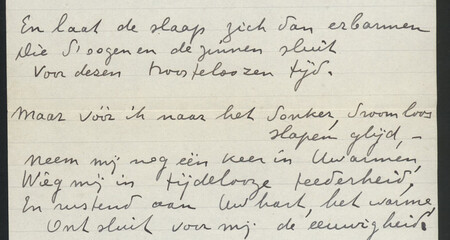 En laat de slaap zich dan erbarmen
Die d'oogen en de zinnen sluit
Voor dezen troosteloozen tijd.
Maar vóór ik naar het donker, droomloos
slapen glijd, –
Neem mij nog één keer in Uw armen,
Wieg mij in tijdelooze teederheid,
En rustend aan Uw hart, het warme,
Ontsluit voor mij de eeuwigheid.